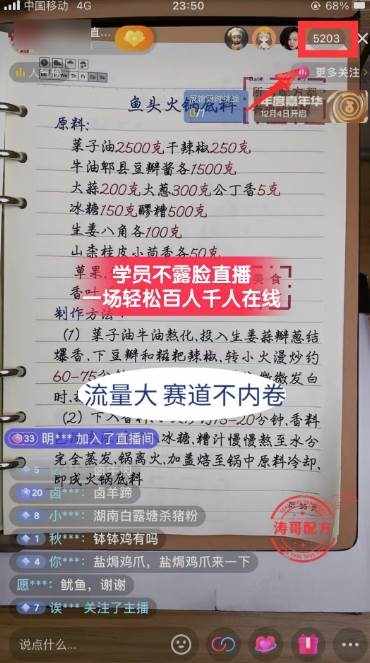 中国移动 4G
23:50
直…
5203
人气榜
更多关注
年度嘉年华
12月4日开启
0/7
鱼头火锅底料
原料：
菜子油2500克干辣椒250克
牛油郫县豆瓣酱各1500克
大蒜200克大葱300克公丁香5克
冰糖150克醪糟500克
生姜八角各100克
山柰桂皮小茴香各50克
草果
香叶
美食
学员不露脸直播
一场轻松百人千人在线
制作方法：
(1) 菜子油牛油熬化,投入生姜蒜瓣葱结
爆香,下豆瓣和糍粑辣椒,转小火漫炒约
60-75分钟
微微发白
时
流量大 赛道不内卷
(2) 下入香料
15-20分钟,香料
冰糖,糟汁慢慢熬至水分
33 明*** 加入了直播间
完全蒸发,锅离火,加盖焐至锅中原料冷却,
即成火锅底料
5
20 卤***：卤羊蹄
8 小***：湖南白露塘杀猪粉
1 秋***：钵钵鸡有吗
4 你***：盐焗鸡爪，盐焗鸡爪来一下
愿***：鱿鱼，谢谢
7 诶*** 关注了主播
涛哥配方
说点什么...